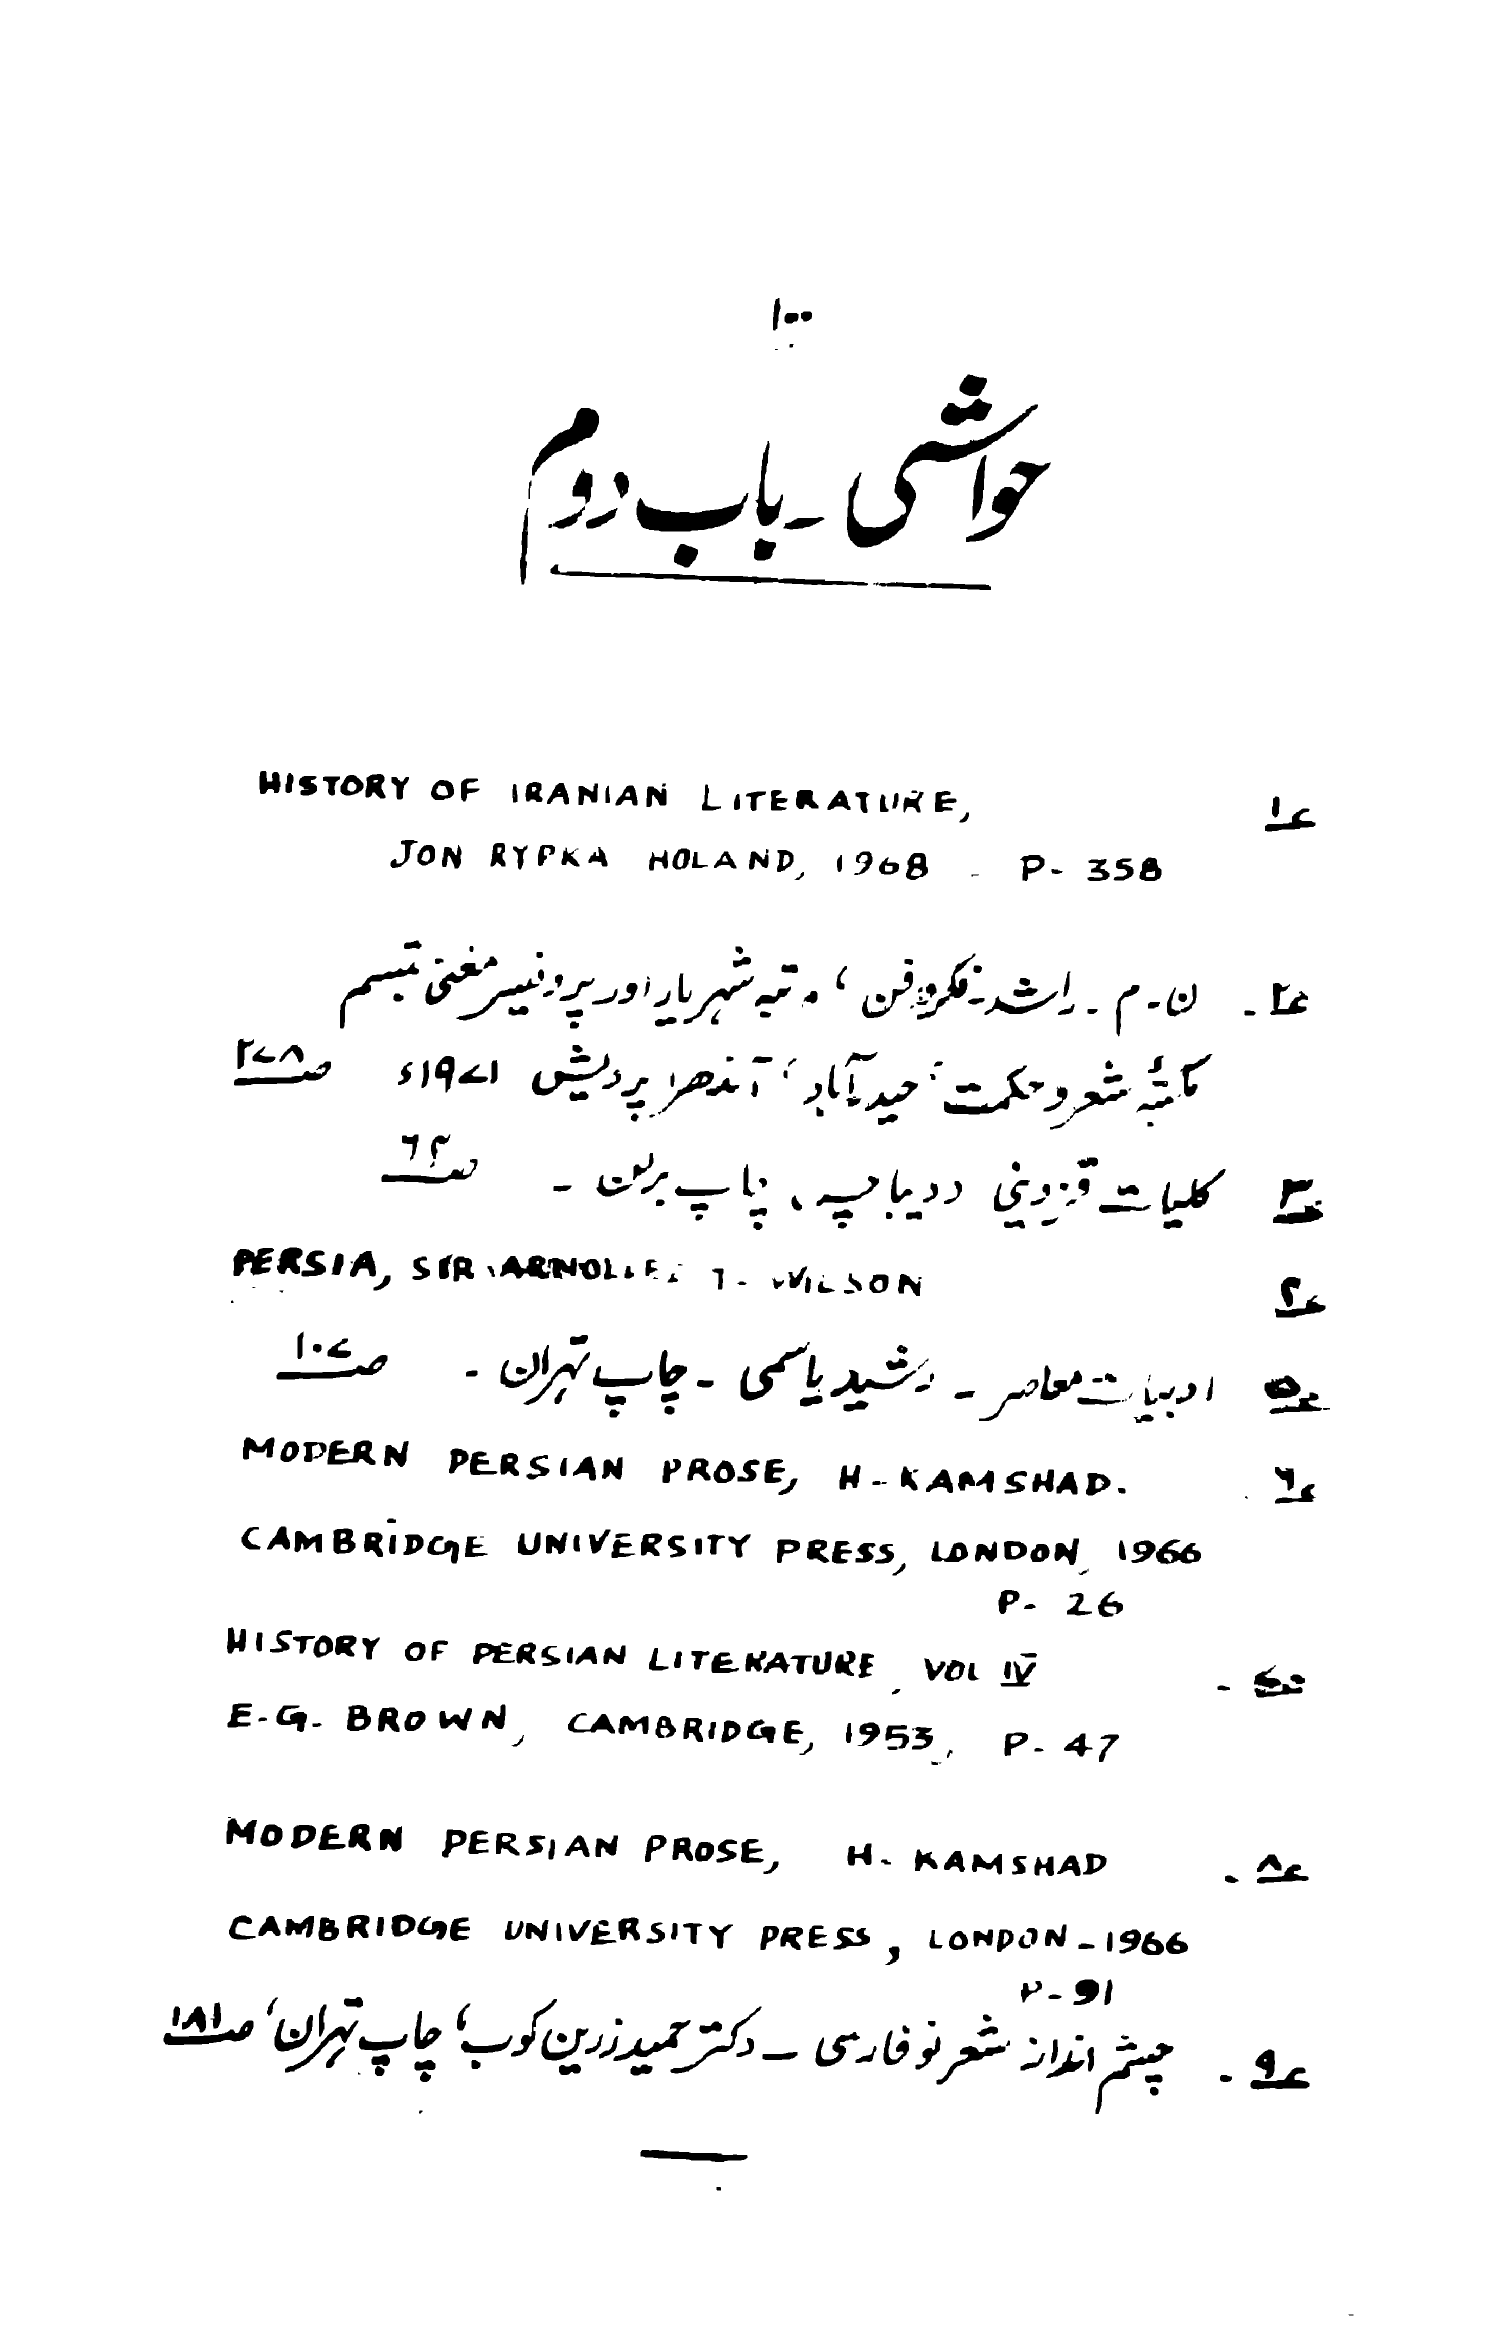 ۱۰۰
حواشی ۔ باب دوم
؏۱ HISTORY OF IRANIAN LITERATURE,
JON RYPKA HOLAND, 1968 - P- 358
؏۲ ۔ ن ۔ م ۔ راشد ۔ فکر و فن ، مرتبہ شہریار اور پروفیسر مغنی تبسم
مکتبۂ شعر و حکمت ، حیدرآباد ، آندھرا پردیش ۱۹۷۱ء ص ۲۷۸
؏۳ کلیات قزوینی دیباچہ ، چاپ برلن ۔ ص ۶۲
؏۴ PERSIA, SIR T. WILSON
؏۵ ادبیات معاصر ۔ رشید یاسمی ۔ چاپ تہران ۔ ص ۱۰۷
؏۶ MODERN PERSIAN PROSE, H-KAMSHAD.
CAMBRIDGE UNIVERSITY PRESS, LONDON, 1966
P- 26
؏۷ ۔ HISTORY OF PERSIAN LITERATURE, VOL IV
E-G- BROWN, CAMBRIDGE, 1953, P- 47
؏۸ ۔ MODERN PERSIAN PROSE, H- KAMSHAD
CAMBRIDGE UNIVERSITY PRESS, LONDON-1966
P-91
؏۹ ۔ چشم انداز شعر نو فارسی ۔ دکتر حمید زرین کوب ، چاپ تہران ، ص ۱۸۱